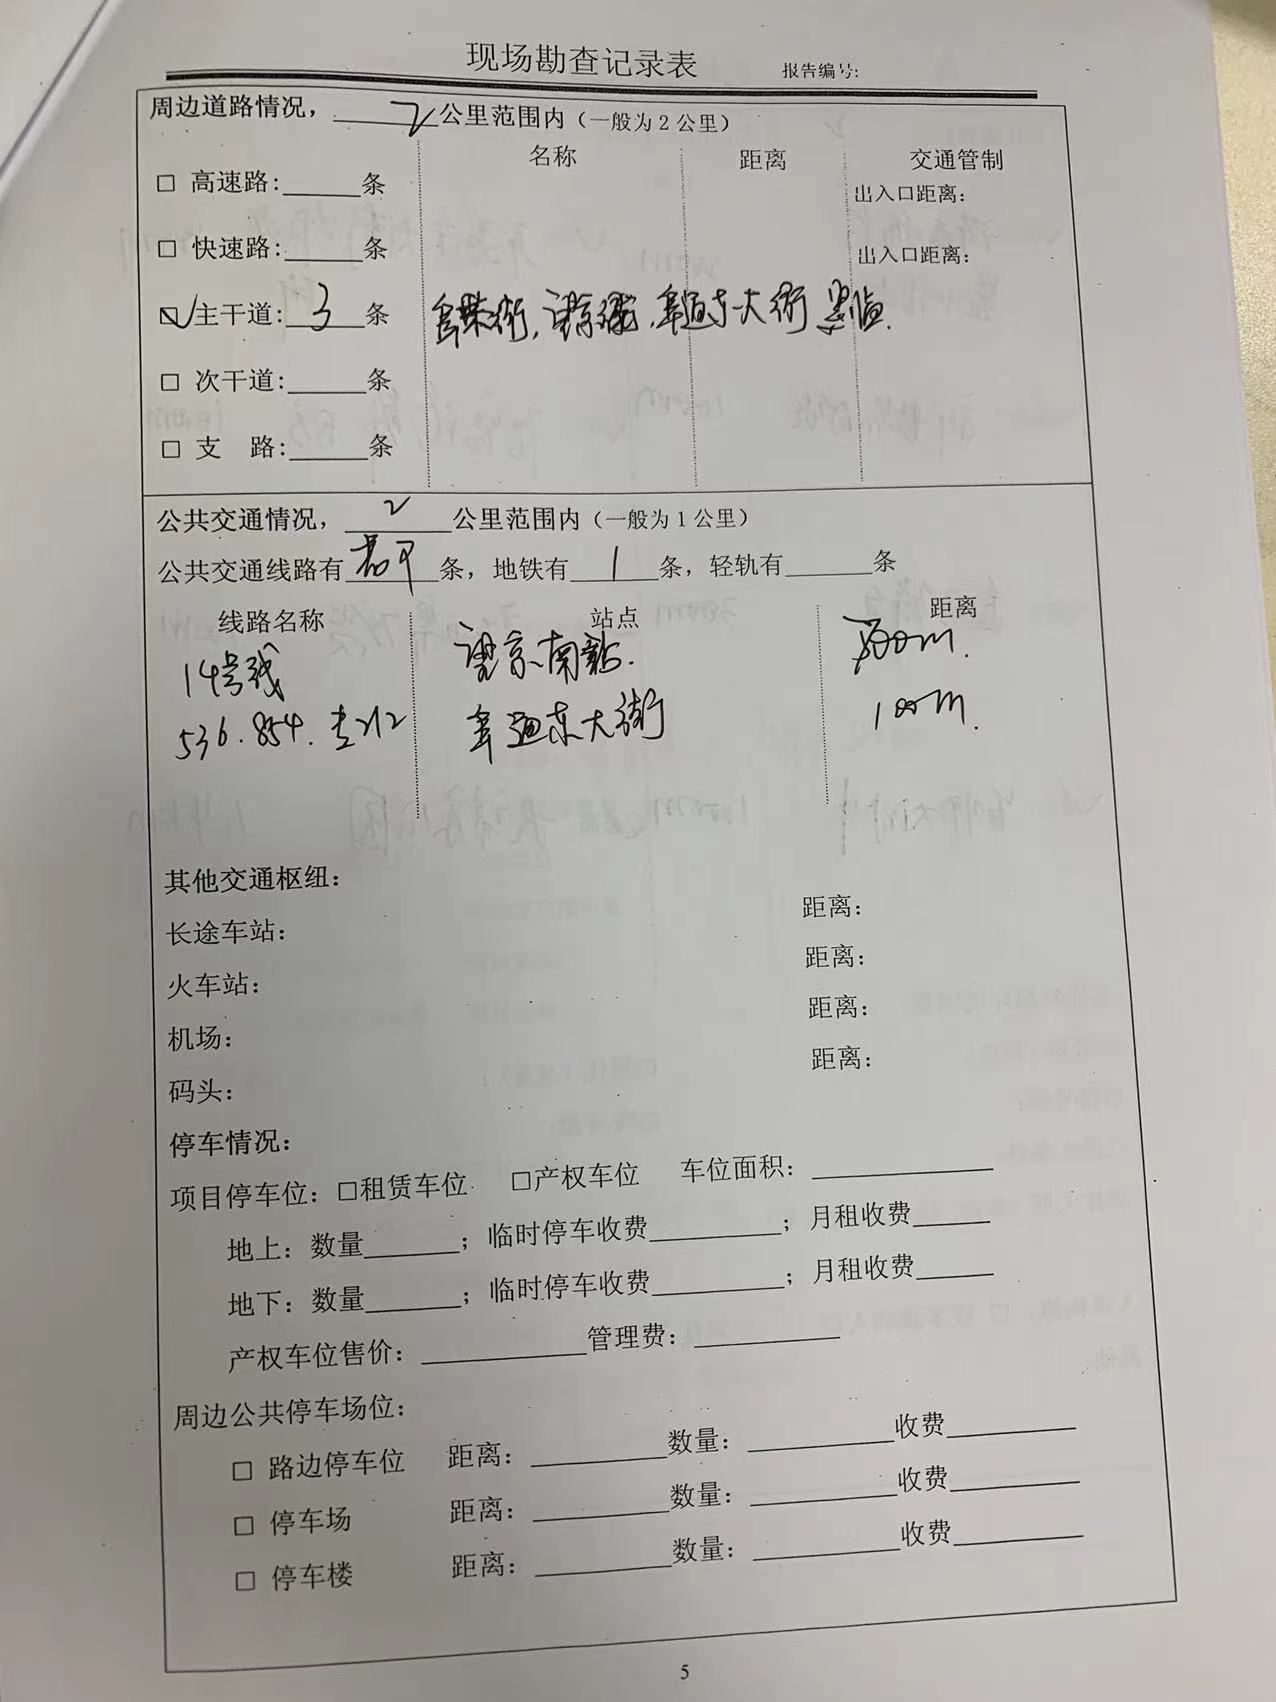 现场勘查记录表
报告编号:
周边道路情况，2公里范围内（一般为2公里）
名称 距离 交通管制
□ 高速路:______条 出入口距离：
□ 快速路:______条 出入口距离：
☑ 主干道:3条 阜荣街，望京街，阜通东大街 紧临.
□ 次干道:______条
□ 支 路:______条
公共交通情况，2公里范围内（一般为1公里）
公共交通线路有若干条，地铁有1条，轻轨有______条
线路名称 站点 距离
14号线 望京南站. 500m.
536.854.专212 阜通东大街 100m.
其他交通枢纽：
长途车站： 距离：
火车站： 距离：
机场： 距离：
码头： 距离：
停车情况：
项目停车位：□租赁车位 □产权车位 车位面积：______
地上：数量______；临时停车收费______；月租收费______
地下：数量______；临时停车收费______；月租收费______
产权车位售价：______管理费：______
周边公共停车场位：
□ 路边停车位 距离：______数量：______收费______
□ 停车场 距离：______数量：______收费______
□ 停车楼 距离：______数量：______收费______
5